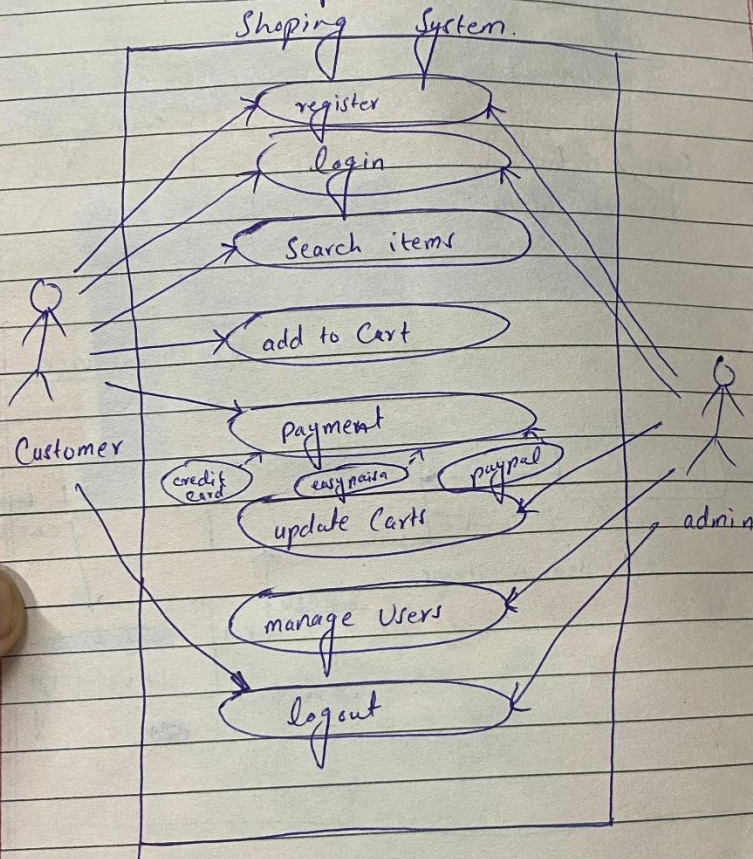 Shoping System.
register
login
Search items
add to Cart
payment
Customer
credit
card
easypaisa
paypal
update Carts
admin
manage Users
logout